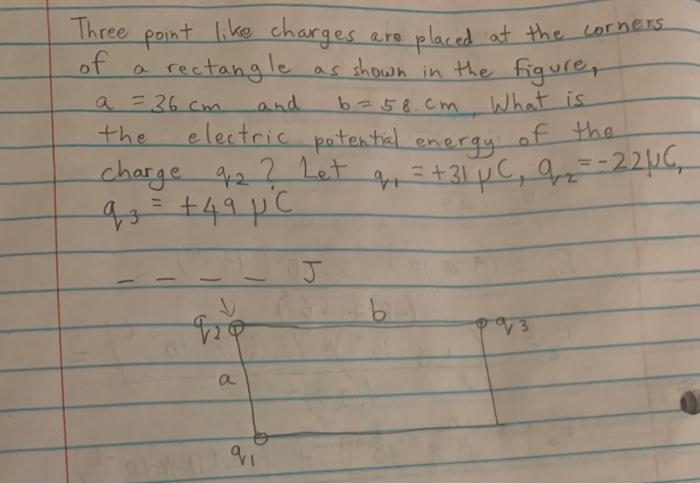 Three point like charges are placed at the corners
of a rectangle as shown in the figure,
a = 36 cm and b = 58 cm, What is
the electric potential energy of the
charge q2? Let q1 = +31 μC, q2 = -22 μC,
q3 = +49 μC
_ _ _ _ J
b
q2
q3
a
q1